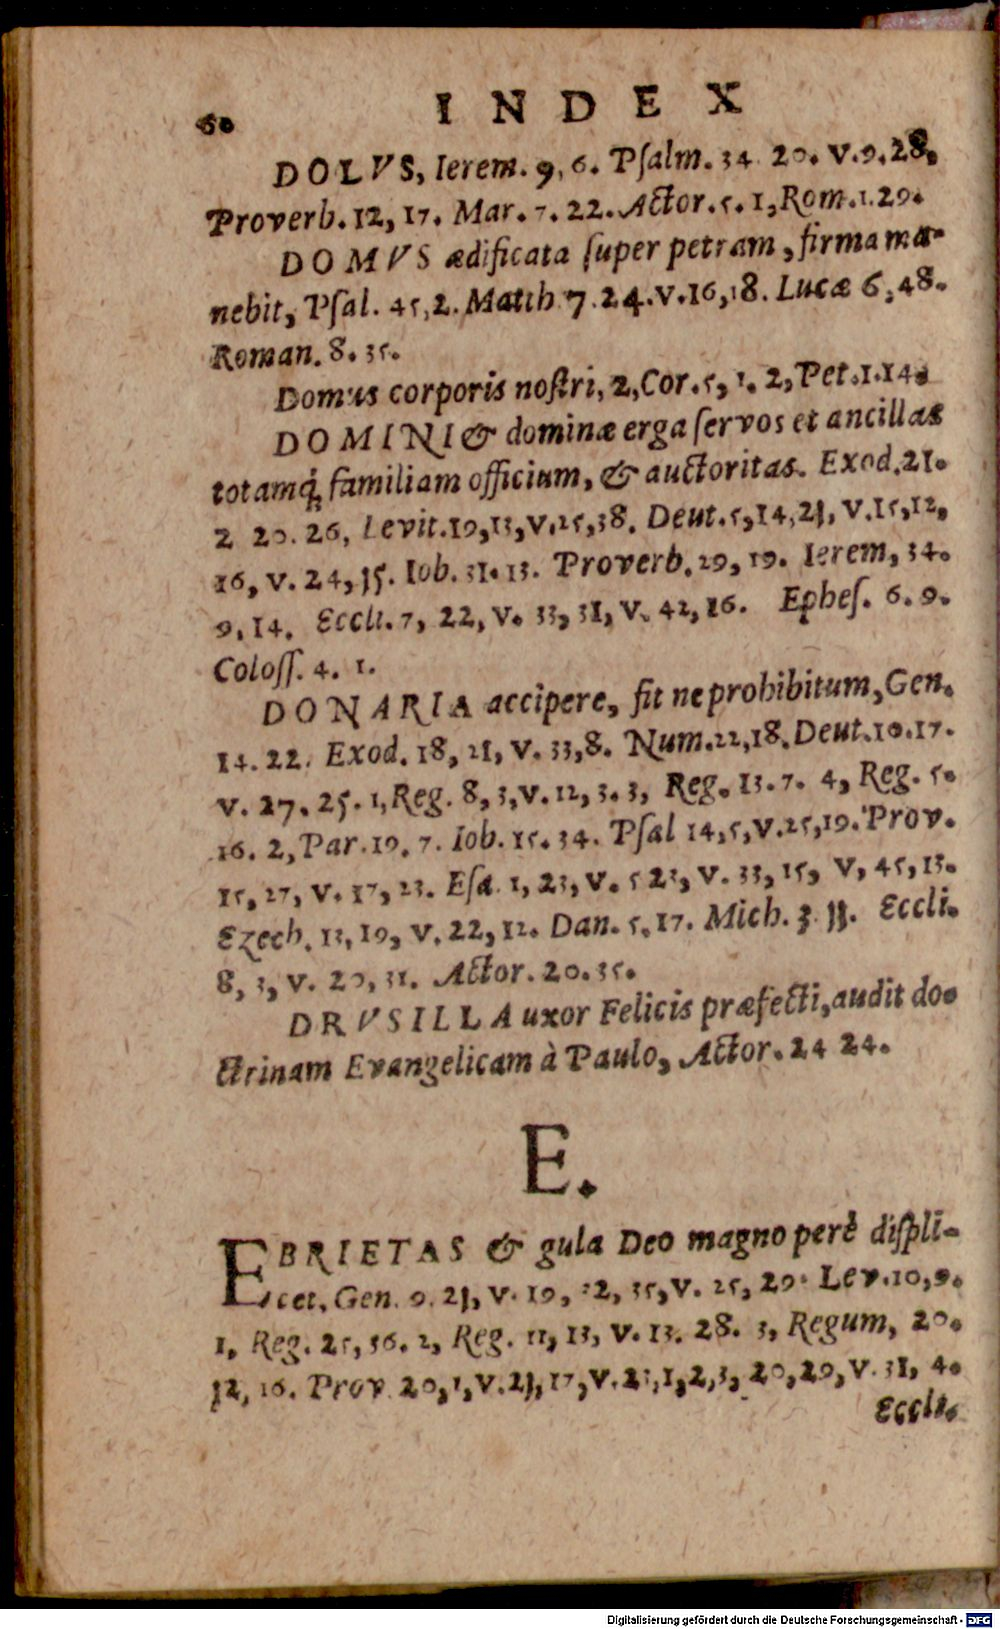 60 INDEX
DOLVS, Ierem. 9, 6. Psalm. 34 20. V. 9. 28,
Proverb. 12, 17. Mar. 7. 22. Actor. 5. 1, Rom. 1. 29.
DOMVS ædificata ſuper petram, firma ma-
nebit, Pſal. 45, 2. Matth 7. 24. v. 16, 18. Lucæ 6, 48.
Roman. 8. 35.
Domus corporis noſtri, 2, Cor. 5, 1. 2, Pet. 1. 14.
DOMINI & dominæ erga ſervos et ancillas
totamq́; familiam officium, & auctoritas. Exod. 21.
2 20. 26, Levit. 19, 13, v. 25, 38. Deut. 5, 14, 21, V. 15, 12,
16, v. 24, 15. Iob. 31. 13. Proverb. 29, 19. Ierem, 34.
9, 14. Eccli. 7, 22, v. 33, 31, v. 42, 16. Epheſ. 6. 9.
Coloſſ. 4. 1.
DONARIA accipere, ſit ne prohibitum, Gen.
14. 22. Exod. 18, 21, v. 33, 8. Num. 22, 18. Deut. 10. 17.
v. 27. 25. 1, Reg. 8, 3, v. 12, 3. 3, Reg. 13. 7. 4, Reg. 5.
16. 2, Par. 19. 7. Iob. 15. 34. Pſal 14, 5, v. 25, 19. Prov.
15, 27, v. 17, 23. Eſa. 1, 23, v. 5 23, v. 33, 15, v, 45, 13.
Ezech. 13, 19, v. 22, 12. Dan. 5. 17. Mich. 3 11. Eccli.
8, 3, v. 20, 31. Actor. 20. 35.
DRVSILLA uxor Felicis præfecti, audit do-
ctrinam Evangelicam à Paulo, Actor. 24 24.
E.
EBRIETAS & gula Deo magno perè diſpli-
cet, Gen. 9. 21, v. 19, 32, 35, v. 25, 29. Lev. 10, 9.
1, Reg. 25, 36. 2, Reg. 11, 13, v. 13. 28. 3, Regum, 20.
12, 16. Prov 20, 1, v. 21, 17, v. 23, 1, 2, 3, 20, 29, v. 31, 4.
Eccli.
Digitalisierung gefördert durch die Deutsche Forschungsgemeinschaft - DFG